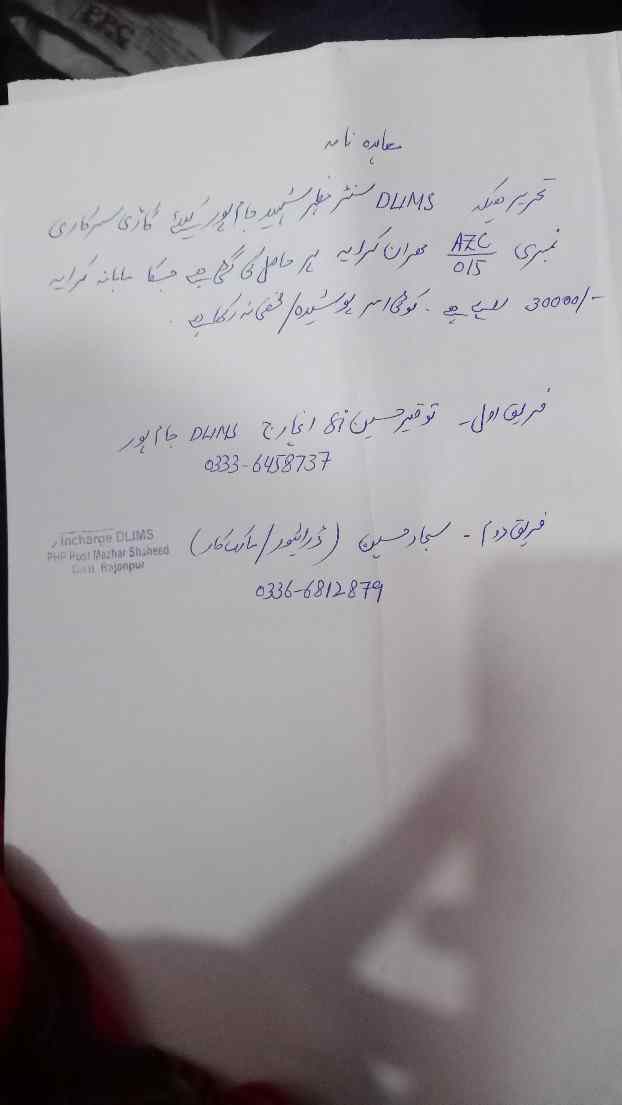 معاہدہ نامہ
تحریر ھیکہ DLIMS سنٹر مظہر شہید جام پور کیلئے گاڑی سرکاری
نمبری AZC/015 مہران کرایہ پر حاصل کی گئی ہے جسکا ماہانہ کرایہ
30000/- روپے ہے۔ کوئی امر پوشیدہ/مخفی نہ رکھا ہے۔
فریق اول۔ توقیر حسین SI انچارج DLIMS جام پور
0333-6458737
فریق دوم۔ سجاد حسین (ڈرائیور/مالک کار)
0336-6812879
Incharge DLIMS
PHP Post Mazhar Shaheed
Distt. Rajanpur